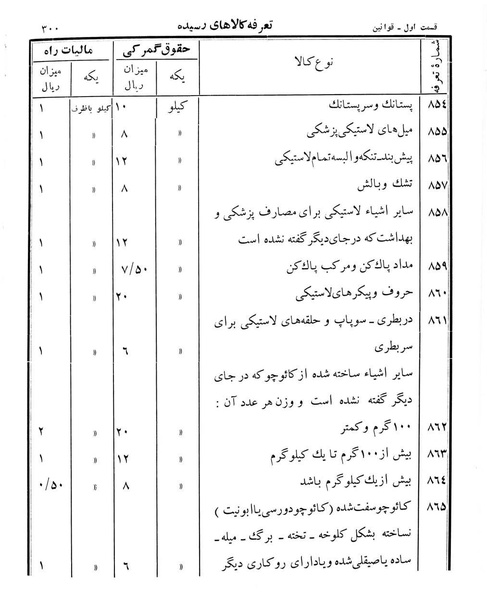 قسمت اول ـ قوانین تعرفه کالاهای رسیده ۳۰۰
شمارهٔ تعرفه نوع کالا حقوق گمرکی مالیات راه
یکه میزان ریال یکه میزان ریال
۸۵۴ پستانک وسرپستانک کیلو ۱۰ کیلو باظرف ۱
۸۵۵ میل‌های لاستیکی‌پزشکی » ۸ » ۱
۸۵۶ پیش‌بند ـ تنکه والبسه تمام لاستیکی » ۱۲ » ۱
۸۵۷ تشک وبالش » ۸ » ۱
۸۵۸ سایر اشیاء لاستیکی برای مصارف پزشکی و
بهداشت که درجای دیگر گفته نشده است » ۱۲ » ۱
۸۵۹ مداد پاک‌کن ومرکب پاک‌کن » ۷/۵۰ » ۱
۸۶۰ حروف وپیکرهای لاستیکی » ۲۰ » ۱
۸۶۱ دربطری ـ سوپاپ و حلقه‌های لاستیکی برای
سربطری » ۶ » ۱
سایر اشیاء ساخته شده ازکائوچوکه درجای
دیگر گفته نشده است و وزن هر عدد آن :
۸۶۲ ۱۰۰گرم وکمتر » ۲۰ » ۲
۸۶۳ بیش از۱۰۰گرم تایک کیلوگرم » ۱۲ » ۱
۸۶۴ بیش ازیک کیلوگرم باشد » ۸ » ۰/۵۰
۸۶۵ کائوچوسفت شده (کائوچودورسی‌یاابونیت )
نساخته بشکل کلوخه ـ تخته ـ برگ ـ میله ـ
ساده یاصیقلی‌شده ویادارای روکاری دیگر » ۶ » ۱